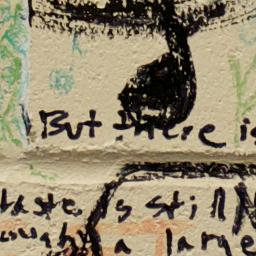 But there is
taste, is still
a large